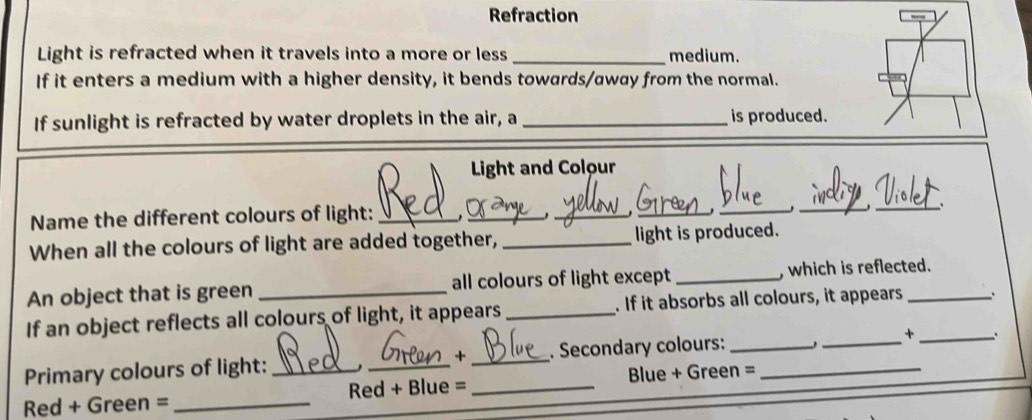 Refraction
Light is refracted when it travels into a more or less ____________ medium.
If it enters a medium with a higher density, it bends towards/away from the normal.
If sunlight is refracted by water droplets in the air, a ________________ is produced.
Light and Colour
Name the different colours of light: Red, orange, yellow, Green, blue, indigo, Violet.
When all the colours of light are added together, __________ light is produced.
An object that is green ______________ all colours of light except ________, which is reflected.
If an object reflects all colours of light, it appears ________. If it absorbs all colours, it appears ______.
Primary colours of light: Red, Green + Blue. Secondary colours: ______, ______ + ______.
Red + Green = __________ Red + Blue = _________ Blue + Green = ____________